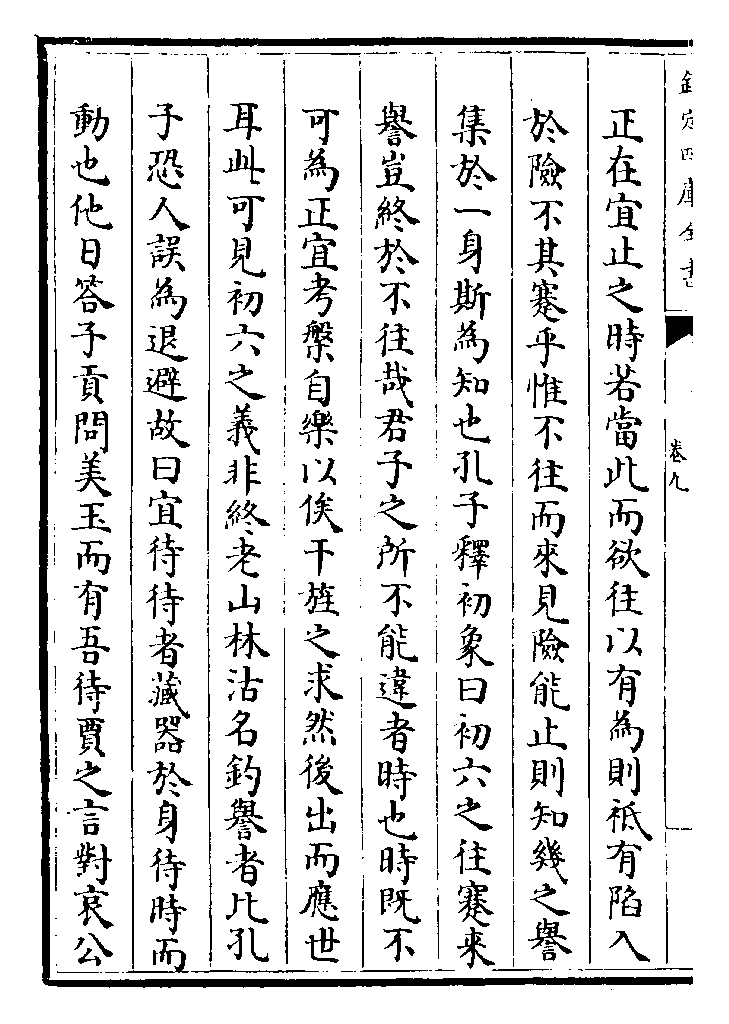 欽定四庫全書
卷九
正在宜止之時若當此而欲往以有為則祗有陷入
於險不其蹇乎惟不往而來見險能止則知幾之譽
集於一身斯為知也孔子釋初象曰初六之往蹇來
譽豈終於不往哉君子之所不能違者時也時既不
可為正宜考槃自樂以俟干旌之求然後出而應世
耳此可見初六之義非終老山林沽名釣譽者比孔
子恐人誤為退避故曰宜待待者藏器於身待時而
動也他日答子貢問美玉而有吾待賈之言對哀公